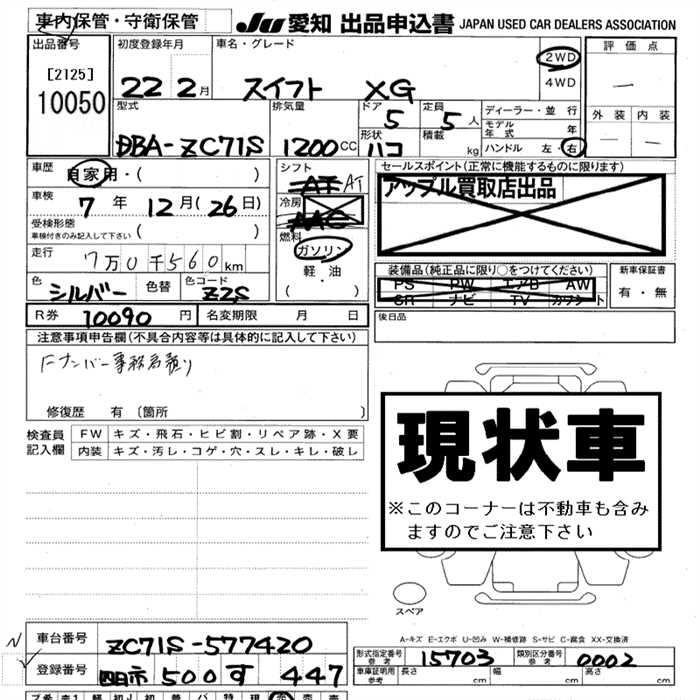 車内保管・守衛保管
JU 愛知 出品申込書 JAPAN USED CAR DEALERS ASSOCIATION
出品番号
[2125]
10050
初度登録年月
22 2月
車名・グレード
スイフト XG
2WD
4WD
評価点
—
外装 内装
— —
型式
DBA-ZC71S
排気量
1200 CC
ドア
5
形状
ハコ
定員
5 人
積載
kg
ディーラー・並行
モデル年式 年
ハンドル 左・右
車歴
自家用・( )
車検
7年 12月(26日)
受検形態
車検付きのみ記入して下さい ( )
走行
7万0千560km
色
シルバー 色替
色コード
Z2S
シフト
AT AT
冷房
AAC
燃料
ガソリン
軽・油
( )
セールスポイント(正常に機能するものに限ります)
アップル買取店出品
装備品(純正品に限り○をつけてください)
PS PW エアB AW
SR ナビ TV カワシート
新車保証書
有・無
R券 10090 円
名変期限 月 日
後日品
注意事項申告欄(不具合内容等は具体的に記入して下さい)
Fナンバー事務局預り
修復歴 有 [箇所 ]
検査員記入欄
FW キズ・飛石・ヒビ割・リペア跡・X要
内装 キズ・汚レ・コゲ・穴・スレ・キレ・破レ
現状車
※このコーナーは不動車も含み
ますのでご注意下さい
スペア
A-キズ E-エクボ U-凹み W-補修跡 S-サビ C-腐食 XX-交換済
車台番号 ZC71S-577420
登録番号 四日市 500 す 447
形式指定番号
参考
15703
類別区分番号
参考
0002
車庫証明用
参考
長さ cm 幅 cm 高さ cm